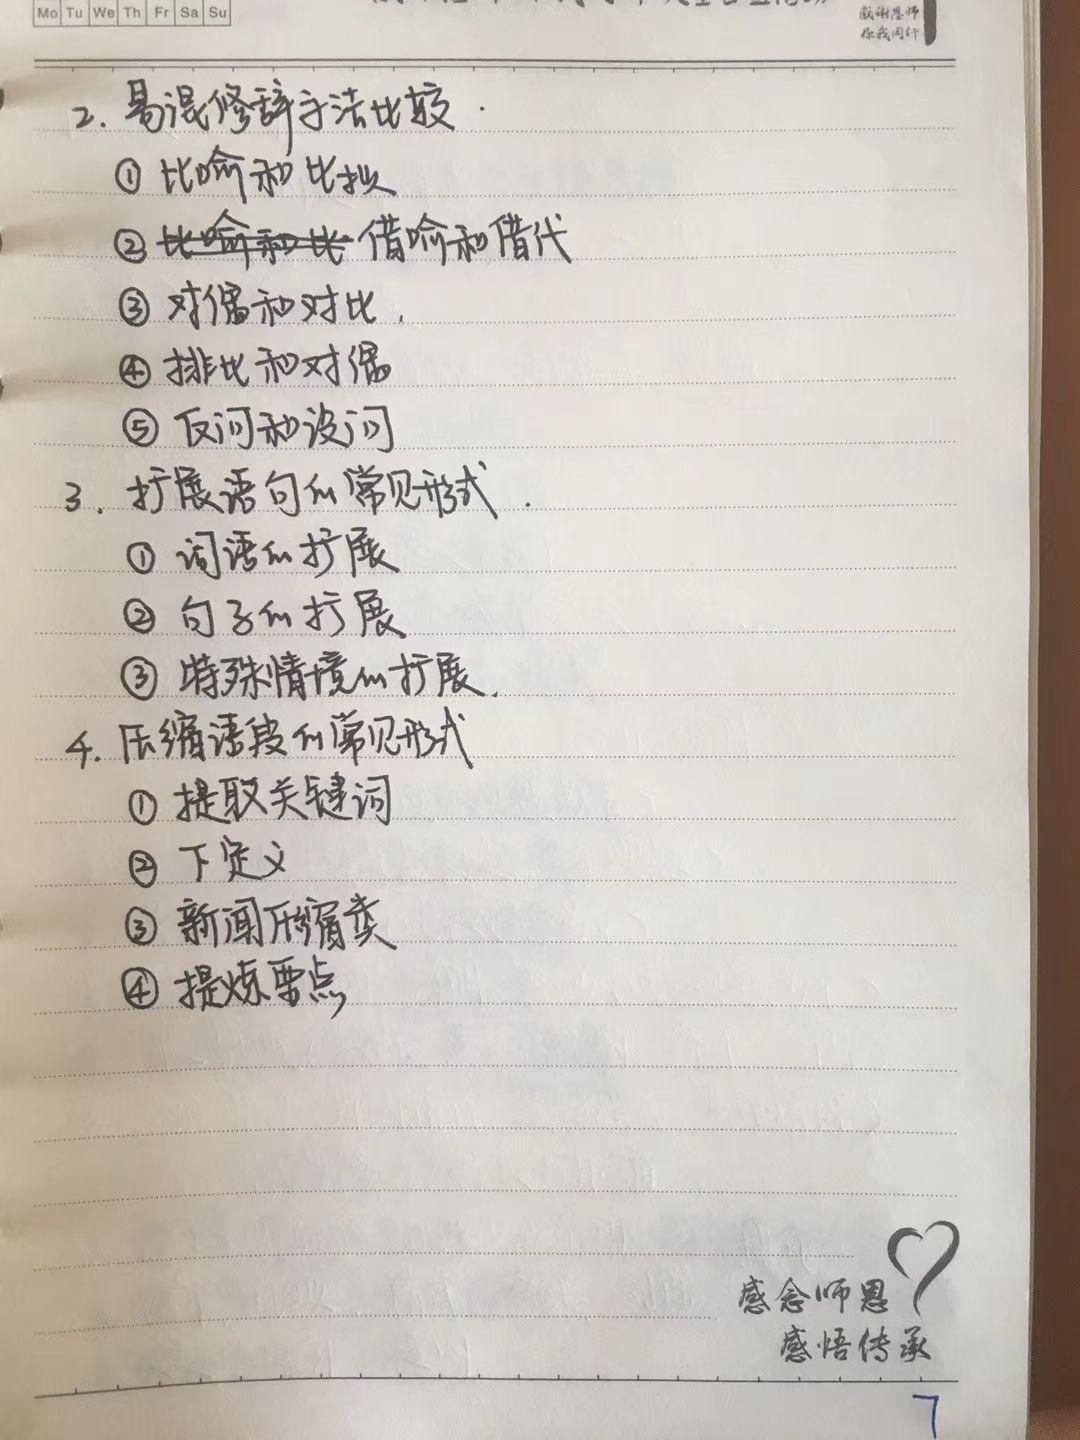 Mo Tu We Th Fr Sa Su
感谢恩师
你我同行
2. 易混修辞手法比较.
① 比喻和比拟
② 比喻和比 借喻和借代
③ 对偶和对比.
④ 排比和对偶
⑤ 反问和设问
3. 扩展语句的常见形式.
① 词语的扩展
② 句子的扩展
③ 特殊情境的扩展.
4. 压缩语段的常见形式
① 提取关键词
② 下定义
③ 新闻压缩类
④ 提炼要点
感念师恩
感悟传承
7